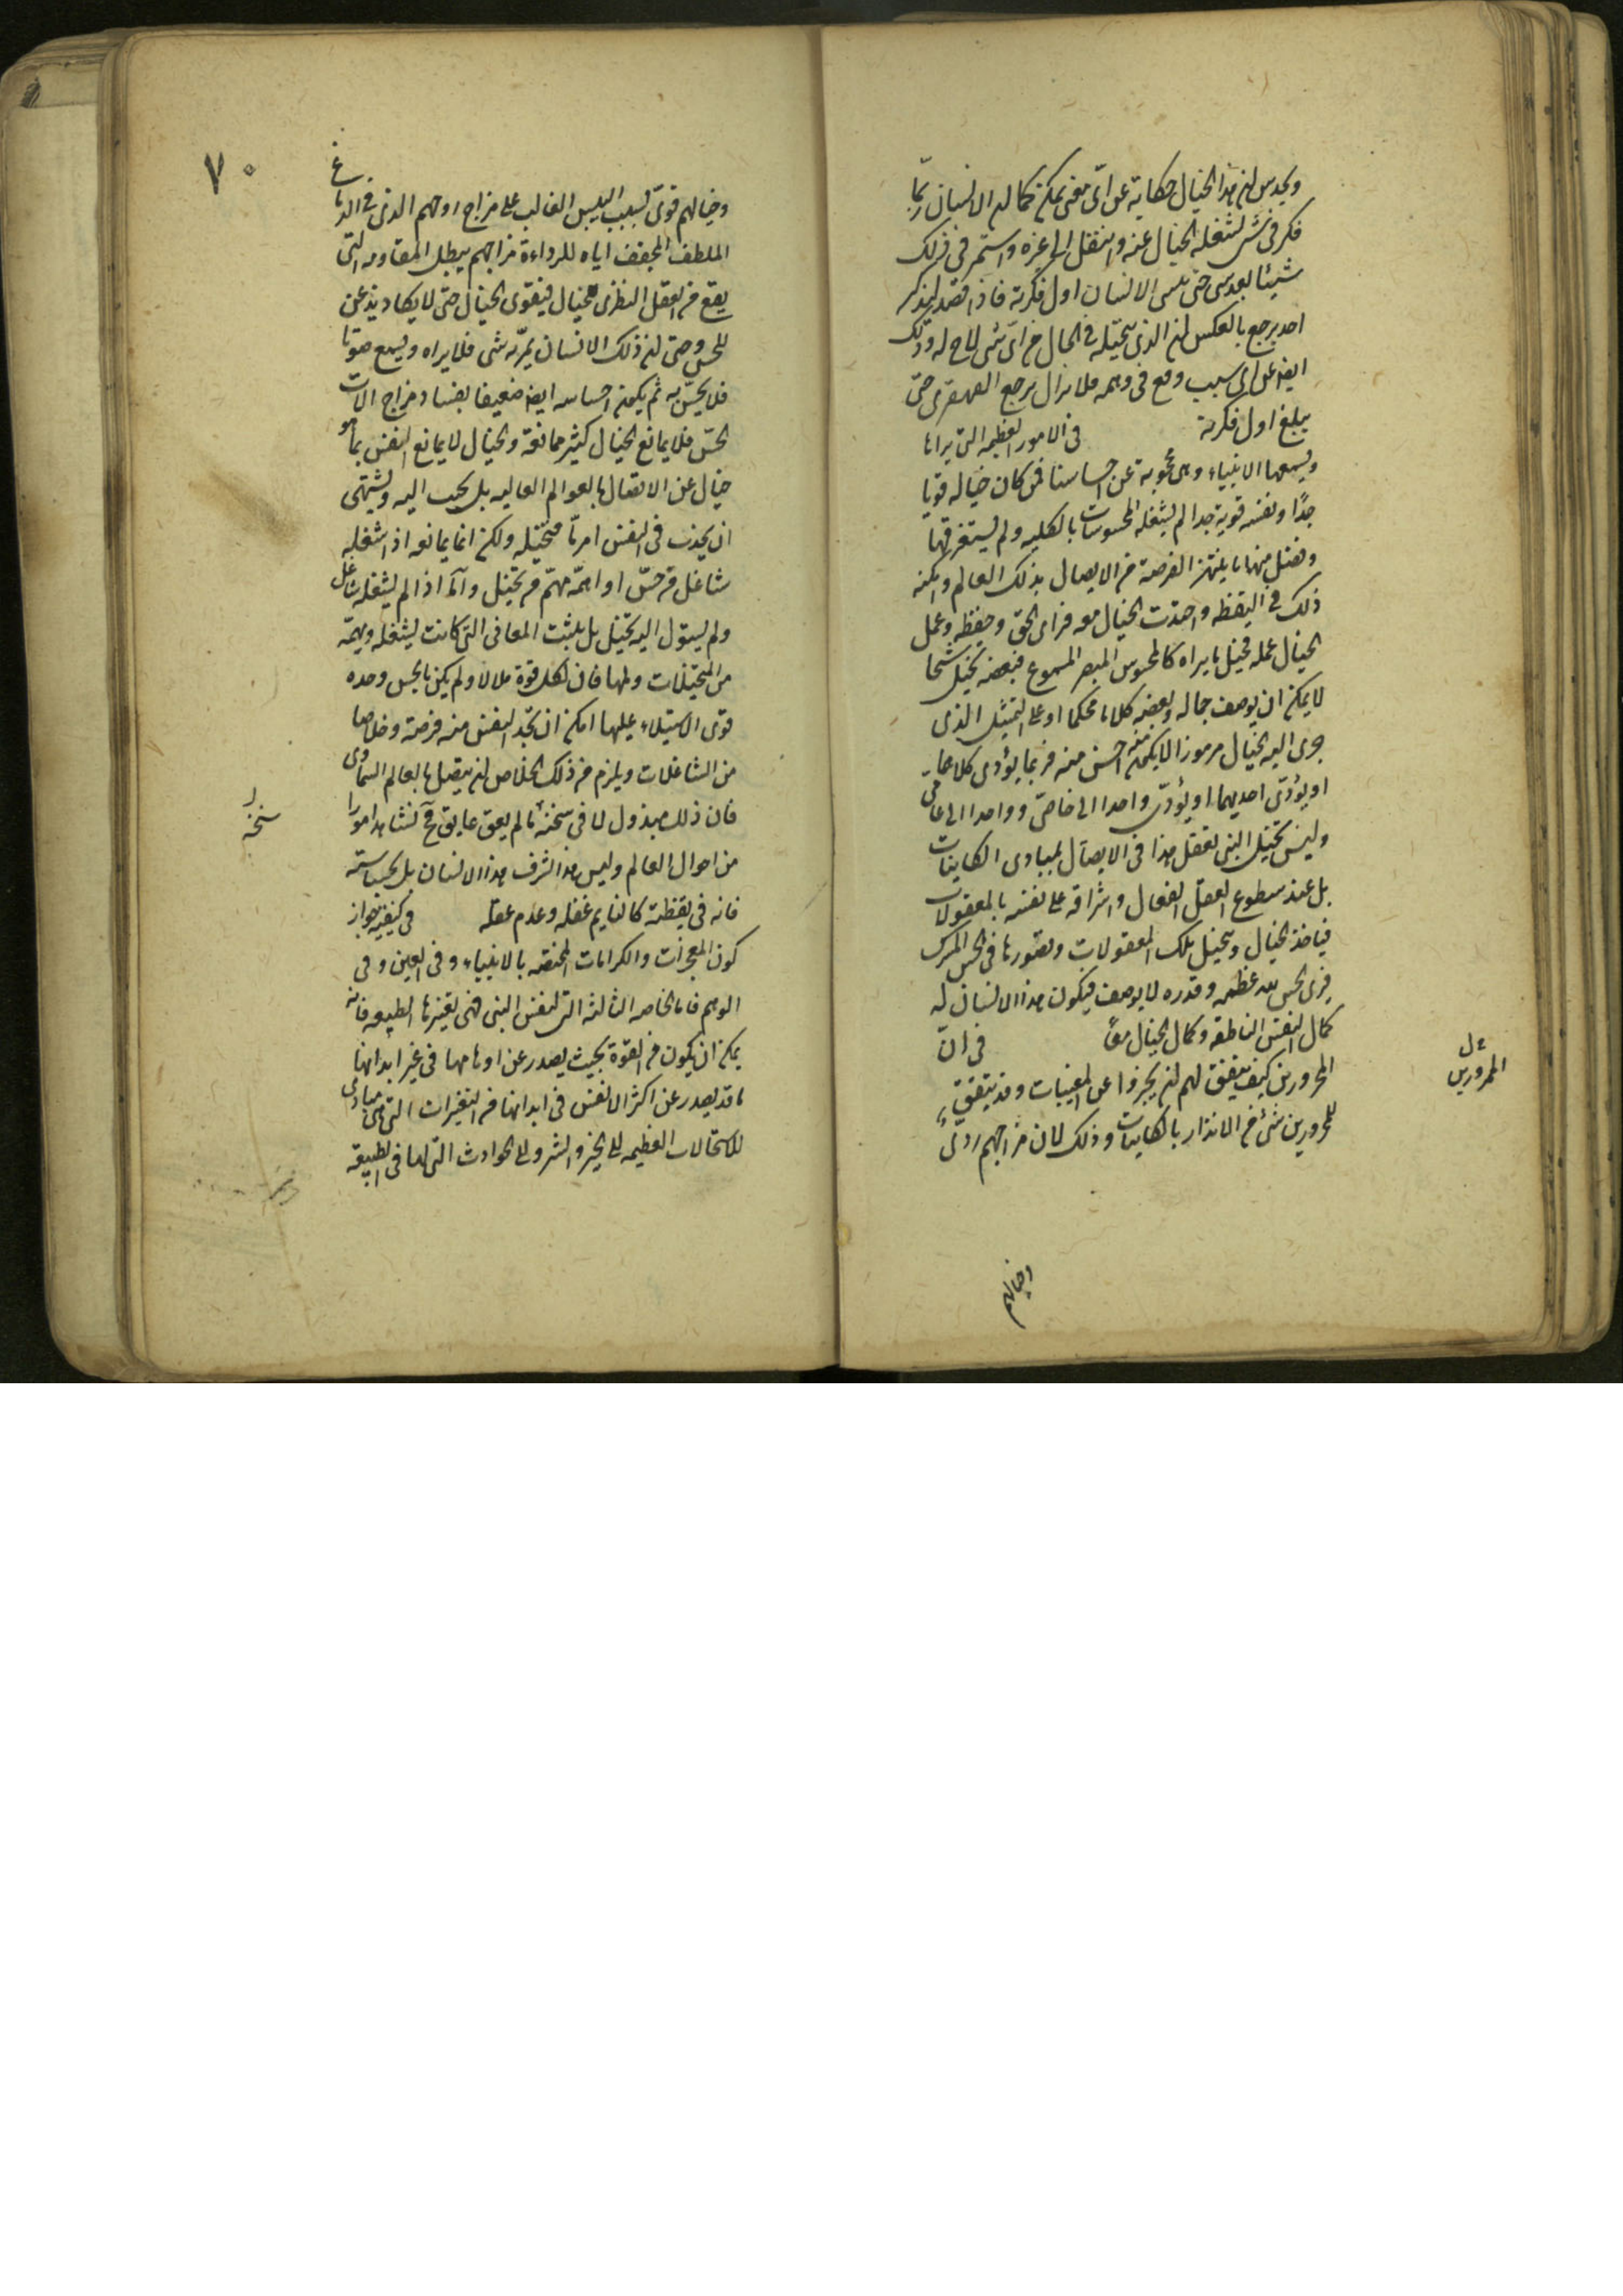 ويحدس ان هذا الخيال حكاية عن اى معنى يمكن كما ان الانسان ربما
فكر فى شى فشغله الخيال عنه وانتقل الى غيره واستمر فى ذلك
شيئا بعد شى حتى ينسى الانسان اول فكرته فاذا قصد لتذكر
اخذ يرجع بالعكس ان الذى تخيله فى الحال من اى شى لاح له وذلك
ايضا عن اى سبب وقع فى وهمه فلا يزال يرجع القهقرى حتى
يبلغ اول فكرته فى الامور العظيمه التى يراها
ويسمعها الانبياء وهى محجوبة عن احساسنا فمن كان خياله قويا
جدًا ونفسه قوية جدا لم يشغله المحسوسات بالكليه ولم يستغرقها
وفضل منها ما ينتهز الفرصة من الاتصال بذلك العالم وامكنه
ذلك فى اليقظه واجذبت الخيال معه فراى الحق وحفظه وعمل
الخيال عمله فخيل ما يراه كالمحسوس المبصر المسموع فبعضه يخيل شبحا
لا يمكن ان يوصف جماله وبعضه كلاما محكما او على التمثيل الذى
جرى اليه الخيال مرموزا لا يمكن احسن منه فربما يؤدى كلاهما
او يؤدّى احديهما او يؤدّى واحدا الى خاصّ وواحدا الى عامّى
وليس تخيل النبى يفعل هذا فى الاتصال بمبادى الكاينات
بل عند سطوع العقل الفعال واشراقه على نفسه بالمعقولات
فياخذ الخيال ويتخيل تلك المعقولات ويصورها فى الحس المشترك
فيرى الحس لله عظمه وقدره لا يوصف فيكون هذا الانسان له
كمال النفس الناطقه وكمال الخيال معًا فى انّ
المحرورين كيف يتفق لهم ان يخبروا عن المغيبات وقد يتفق
للمحرورين شئ من الانذار بالكاينات وذلك لان مزاجهم ردىّ
الممرورين
وخيالهم
٧٠
وخيالهم قوىّ بسبب اليبس الغالب على مزاج روحهم الذى فى الدماغ
الملطف المجفف اياه للرداءة مزاجهم يبطل المقاومه التى
يقع من العقل النظرى للخيال فيتقوى الخيال حتى لا يكاد يذعن
للحس وحتى ان ذلك الانسان يمرّ به شى فلا يراه ويسمع صوتا
فلا يحسّ به ثم يكون احساسه ايضا ضعيفا بفساد مزاج الات
الحسّ فلا يمانع الخيال كثير ممانعة والخيال لا يمانع النفس بما هو
خيال عن الاتصال بالعوالم العاليه بل يحب اليه ويشتهى
ان يحدث فى النفس امر ما فتخيله ولكن انما يمانعه اذا شغله
شاغل من حسّ او اهمّه مهمّ من تخيل وامّا اذا لم يشغله شاغل
ولم يستول اليه تخيل بل بثت المعانى التى كانت يشغله ويهمّه
من المتخيلات ولها فان لكل قوة ملالا ولم يكن بالحس وحده
قوى الاستيلاء عليها امكن ان تجد النفس منه فرصة وخلاصا
من الشاغلات ويلزم من ذلك الخلاص ان يتصل بالعالم السماوى
فان ذلك مبذول لها فى سنخه ما لم يعق عايق فح تشاهد امورا
من احوال العالم وليس هذا لشرف هذا الانسان بل لخساسته
فانه فى يقظته كالنايم غفله وعدم عقله فى كيفية جواز
كون المعجزات والكرامات المختصه بالانبياء وفى العين وفى
الوهم فاما الخاصه الثالثه التى لنفس النبى فهى تغييرها الطبيعه فانه
يمكن ان يكون من القوّة بحيث يصدر عن اوهامها فى غير ابدانها
ما قد يصدر عن اكثر الانفس فى ابدانها من التغيرات التى هى مبادى
للاستحالات العظيمه للخير والشر وللحوادث التى لها فى الطبيعة
سنخه